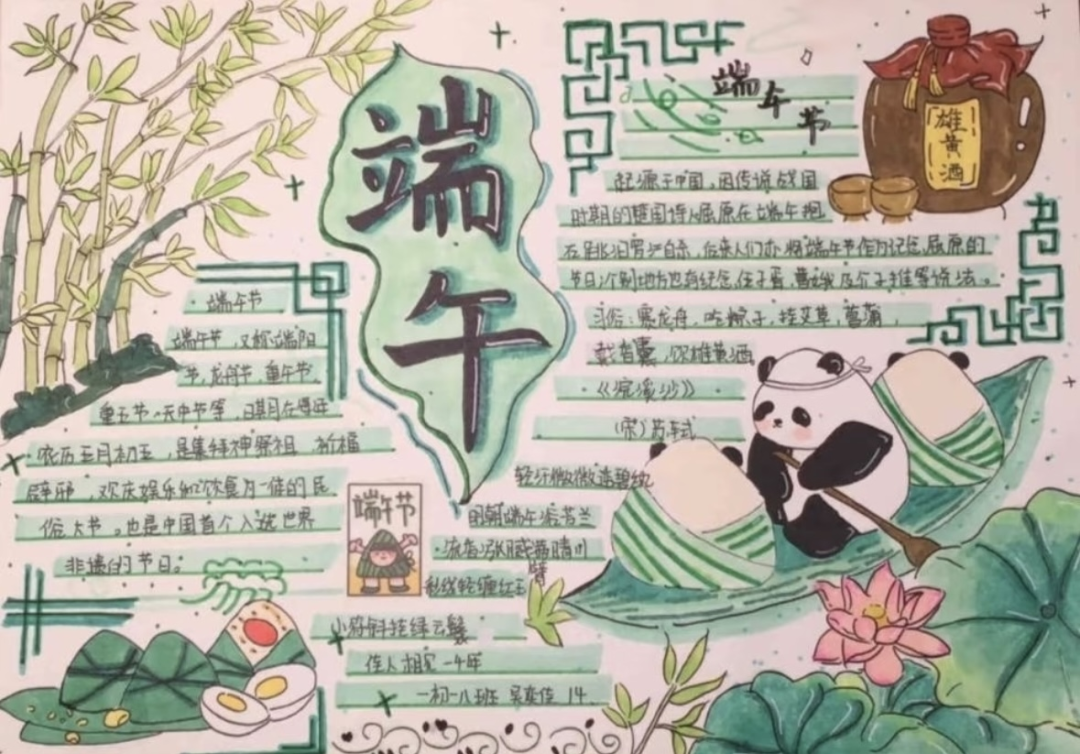 端午
端午节
端午节，又称端阳
节，龙舟节，重午节
重五节、天中节等，日期在每年
农历五月初五，是集拜神祭祖、祈福
辟邪、欢庆娱乐和饮食为一体的民
俗大节。也是中国首个入选世界
非遗的节日。
端午节
端午节
起源于中国，因传说战国
时期的楚国诗人屈原在端午抱
石跳汨罗江自杀，后来人们亦将端午节作为纪念屈原的
节日；个别地方也有纪念伍子胥、曹娥及介子推等说法。
习俗：赛龙舟，吃粽子，挂艾草，菖蒲，
戴香囊，饮雄黄酒
《浣溪沙》
（宋）苏轼
轻汗微微透碧纨
明朝端午浴芳兰
流香涨腻满晴川
彩线轻缠红玉臂
小符斜挂绿云鬟
佳人相见一千年
一初一八班 吴 佳 14
雄黄酒